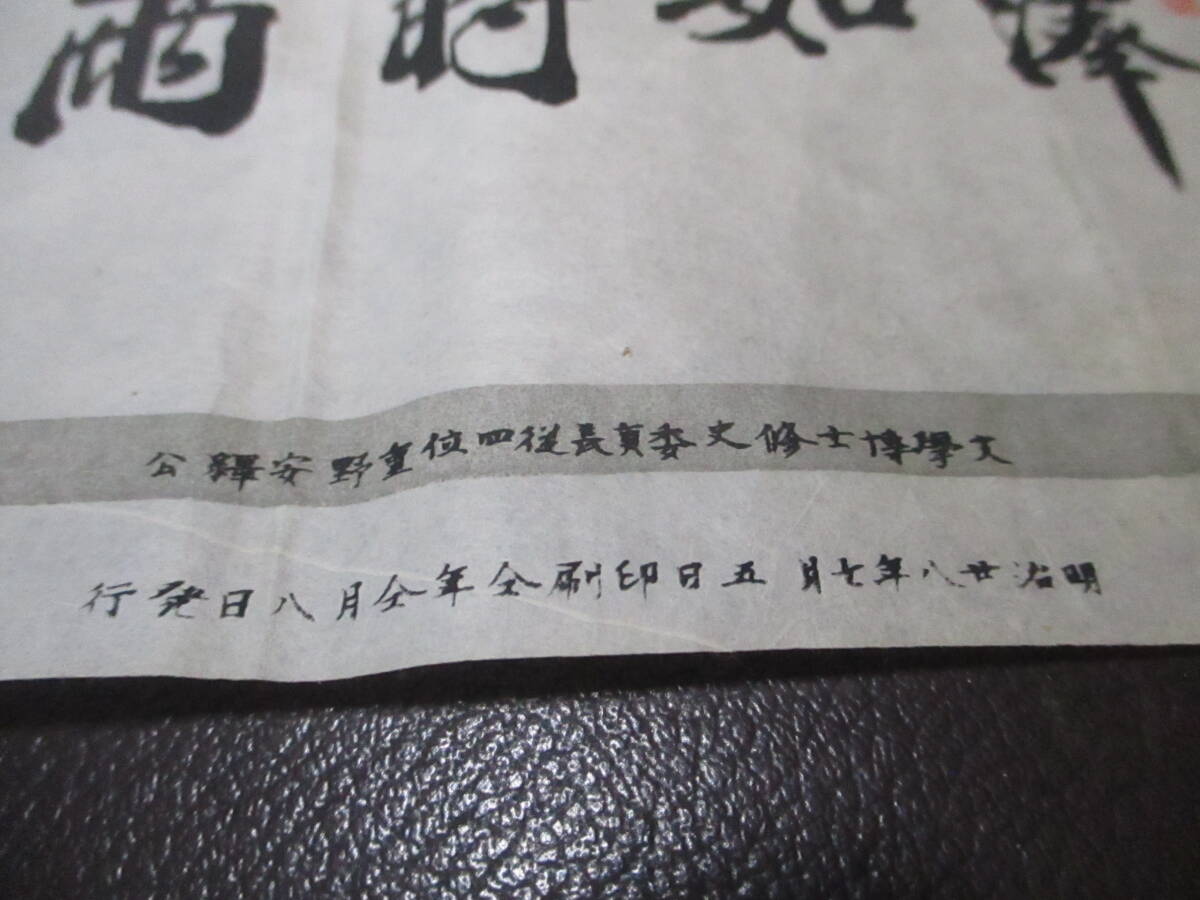 如時雨
文學博士修史委員長従四位重野安繹公
明治廿八年七月五日印刷仝年仝月八日発行